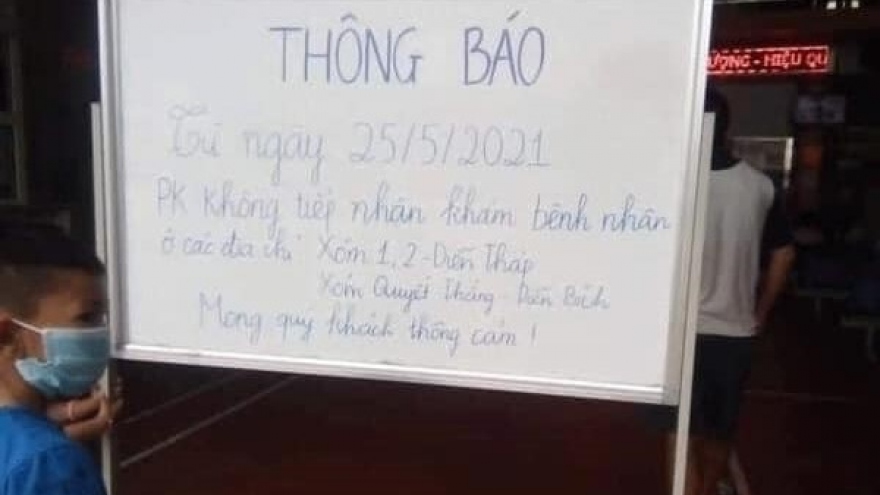 THÔNG BÁO
ƯỢNG - HIỆU QU
Từ ngày 25/5/2021
PK không tiếp nhận khám bệnh nhân
ở các địa chỉ Xóm 1, 2 - Diễn Tháp
Xóm Quyết Thắng - Diễn Bích
Mong quý khách thông cảm !